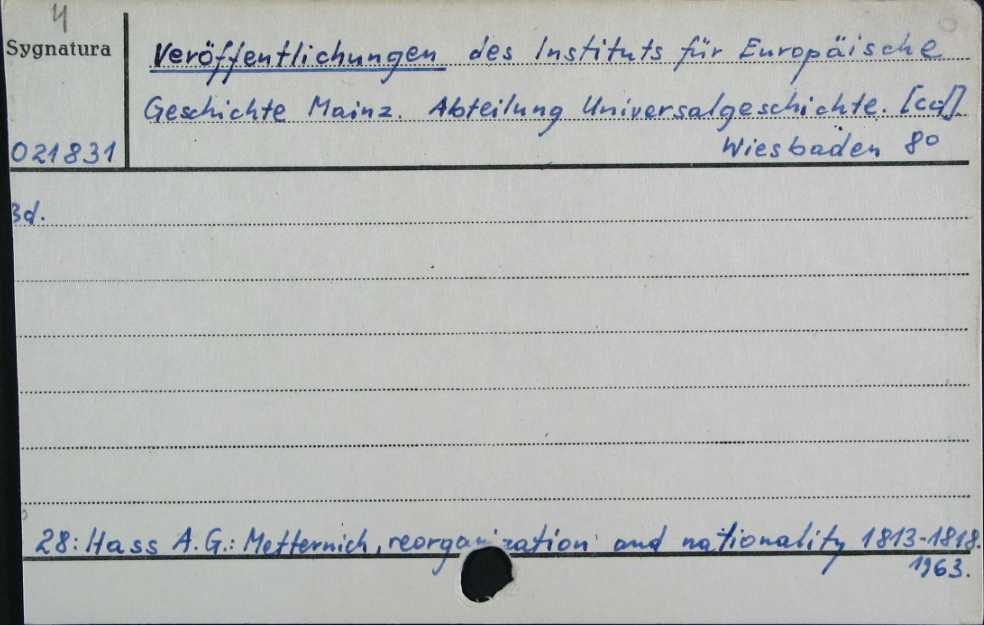 4
Sygnatura
Veröffentlichungen des Instituts für Europäische
Geschichte Mainz. Abteilung Universalgeschichte. [cd].
021831
Wiesbaden 8o
Bd.
28: Hass A. G.: Metternich, reorganization and nationality 1813-1818.
1963.